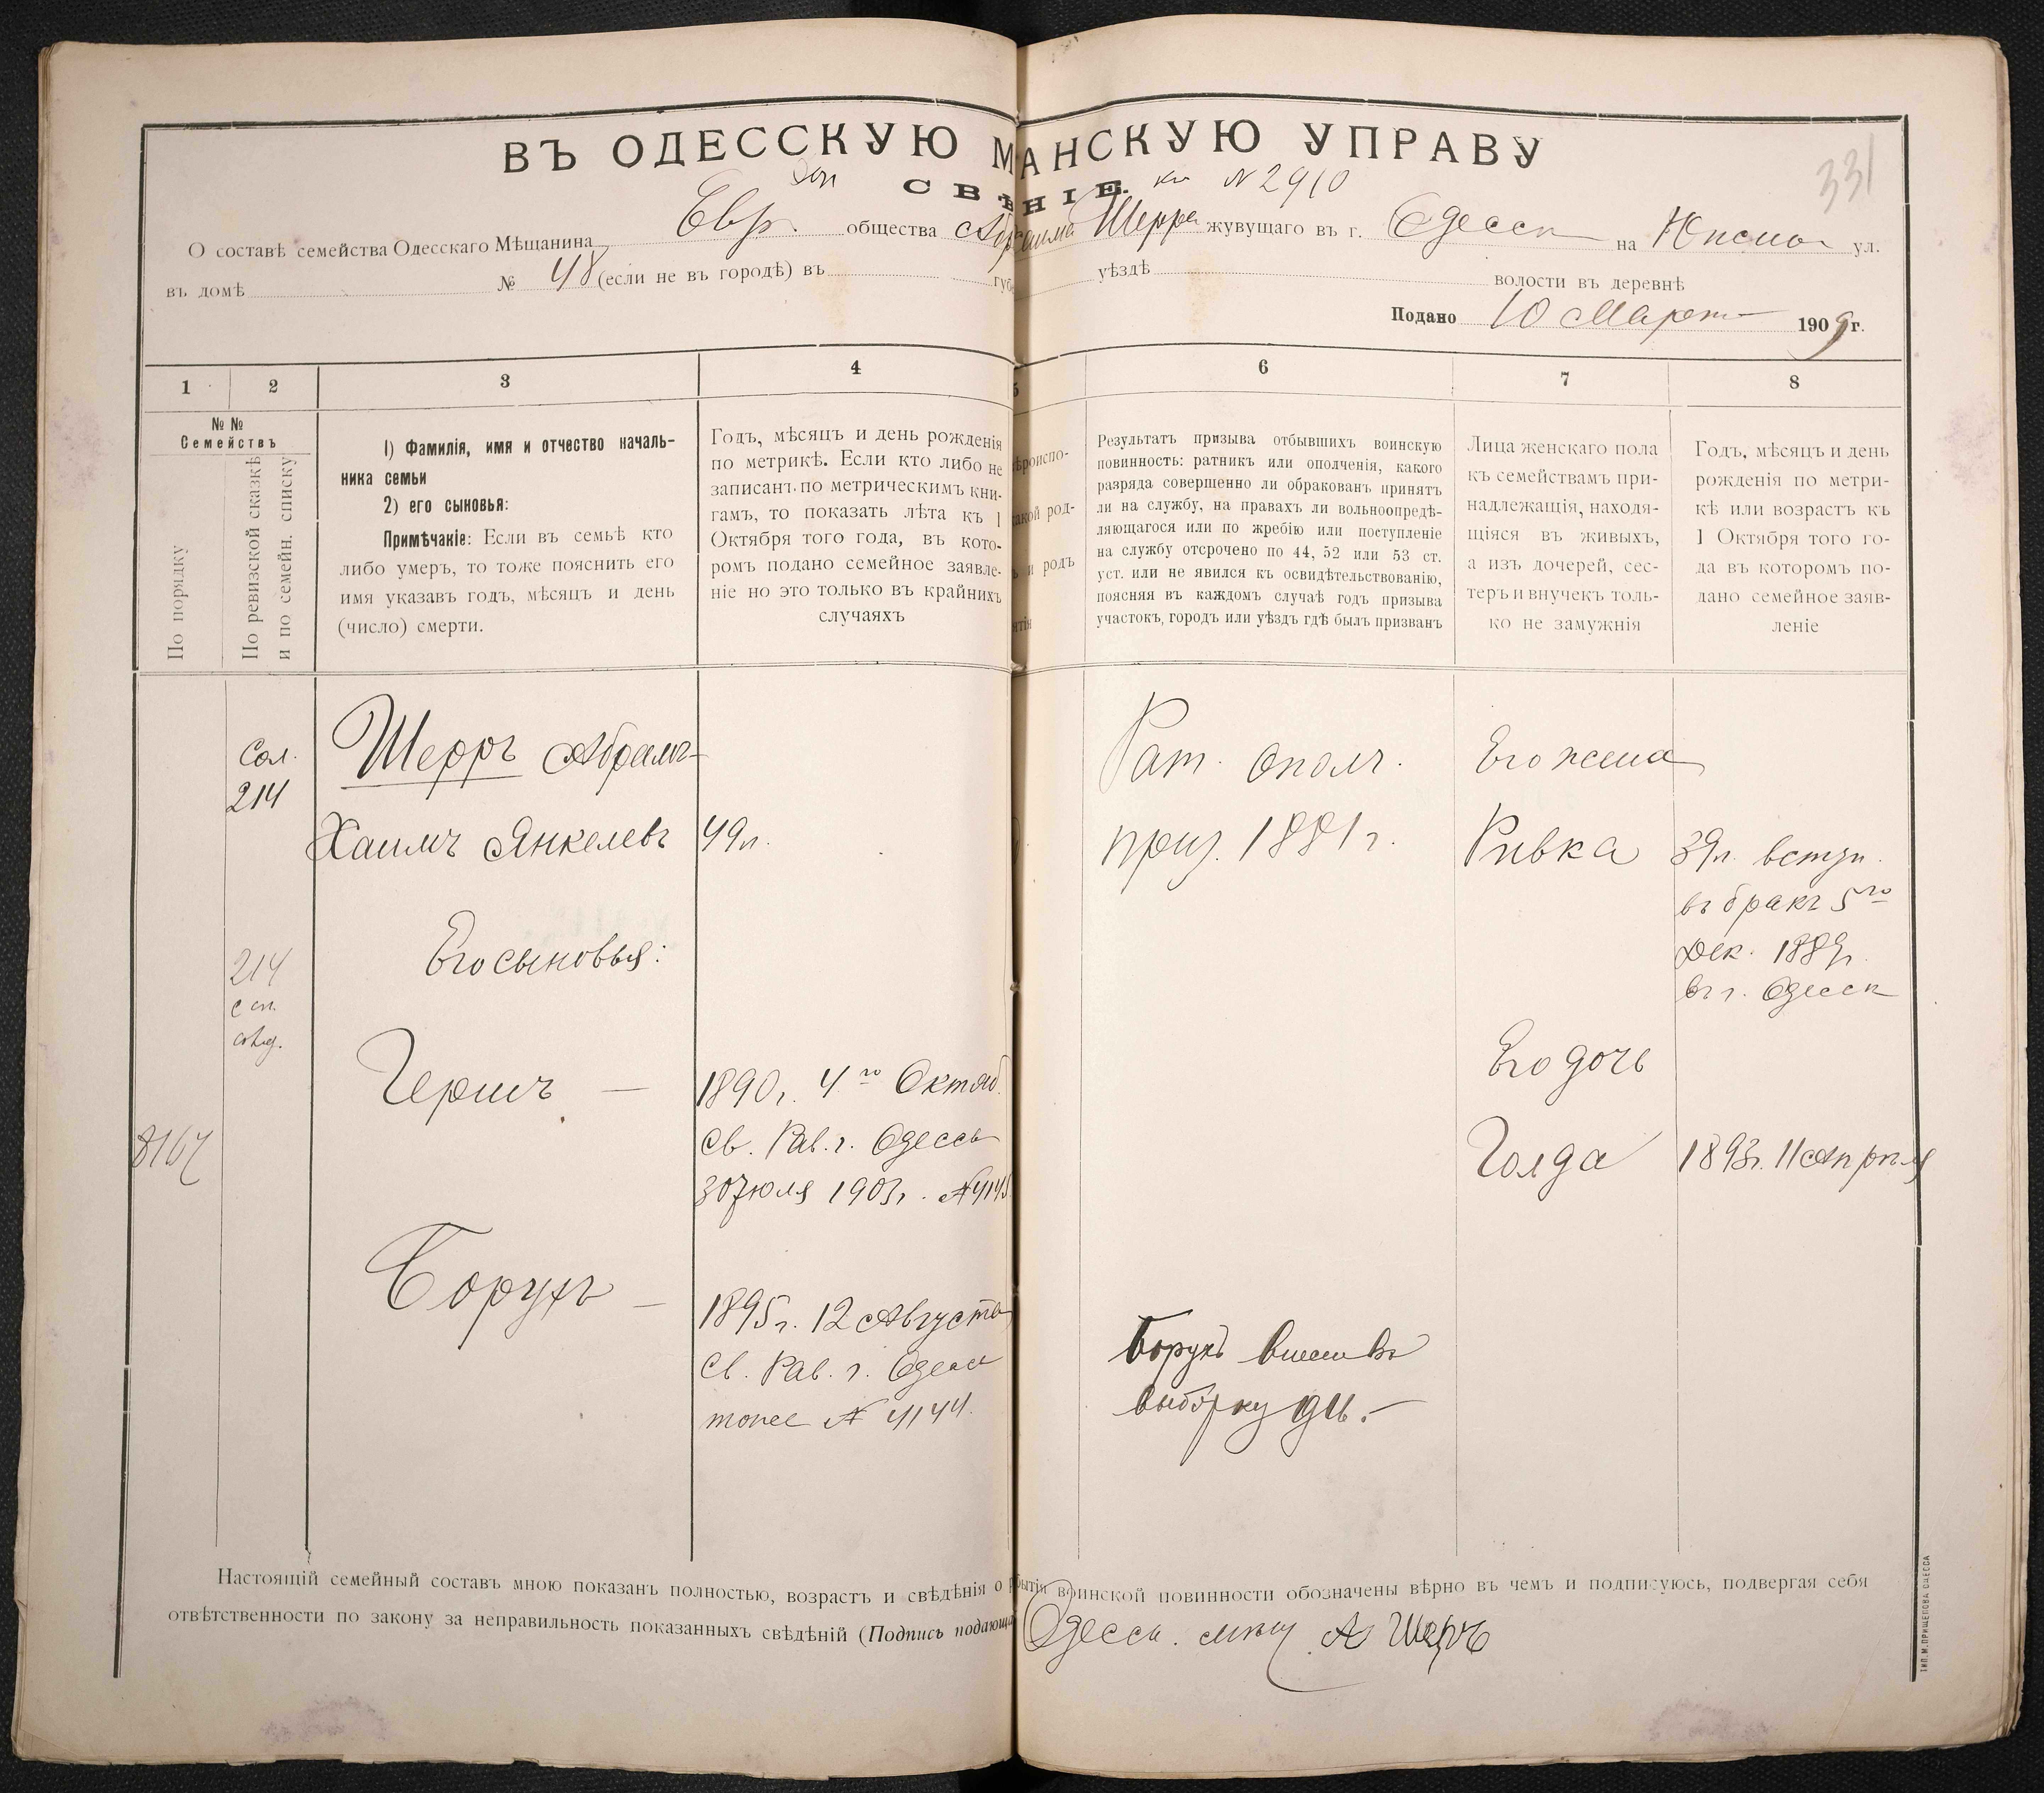 ВЪ ОДЕССКУЮ М АНСКУЮ УПРАВУ
331
Доп СВѢ НІЕ. къ N 2910
О составѣ семейства Одесскаго Мѣщанина Евр. общества Абрама Шерра жувущаго въ г. Одессѣ на Южной ул.
въ домѣ № 48 (если не въ городѣ) въ губ уѣздѣ волости въ деревнѣ
Подано 10 Марта 1909 г.
1 2 3 4 5 6 7 8
№ №
Семействъ
По порядку
По ревизской сказкѣ
и по семейн. списку
1) Фамилія, имя и отчество началь-
ника семьи
2) его сыновья:
Примѣчаніе: Если въ семьѣ кто
либо умеръ, то тоже пояснить его
имя указавъ годъ, мѣсяцъ и день
(число) смерти.
Годъ, мѣсяцъ и день рожденія
по метрикѣ. Если кто либо не
записанъ по метрическимъ кни-
гамъ, то показать лѣта къ 1
Октября того года, въ кото-
ромъ подано семейное заявле-
ніе но это только въ крайнихъ
случаяхъ
ѣроиспо-
акой род-
и родъ
ятія
Результатъ призыва отбывшихъ воинскую
повинность: ратникъ или ополченія, какого
разряда совершенно ли обракованъ принятъ
ли на службу, на правахъ ли вольноопредѣ-
ляющагося или по жребію или поступленіе
на службу отсрочено по 44, 52 или 53 ст.
уст. или не явился къ освидѣтельствованію,
поясняя въ каждомъ случаѣ годъ призыва
участокъ, городъ или уѣздъ гдѣ былъ призванъ
Лица женскаго пола
къ семействамъ при-
надлежащія, находя-
щіяся въ живыхъ,
а изъ дочерей, сес-
теръ и внучекъ толь-
ко не замужнія
Годъ, мѣсяцъ и день
рожденія по метри-
кѣ или возрастъ къ
1 Октября того го-
да въ которомъ по-
дано семейное заяв-
леніе
Сол.
214
Шерръ Абрамъ-
Хаимъ Янкелевъ 49 л.
Рат. ополч.
приз. 1881 г.
Его жена
Ривка
39 л. вступ.
въ бракъ 5го
Дек. 1889 г.
въ г. Одессѣ
Его сыновья:
214
с сп.
Гершъ —
1890 г. 4го Октяб.
Св. Рав. г. Одессы
30 Іюля 1903 г. № 4145
Его дочь
Голда 1893 г. 11 Апрѣля
8167
Борухъ —
1895 г. 12 Августа
Св. Рав. г. Одессы
тоже № 4144.
Борухъ внесен въ
выборку 916. —
Настоящій семейный составъ мною показанъ полностью, возрастъ и свѣдѣнія о бытіи воинской повинности обозначены вѣрно въ чемъ и подписуюсь, подвергая себя
отвѣтственности по закону за неправильность показанныхъ свѣдѣній (Подпись подающа Одесск. мѣщ. А Шеръ
ТИП. М. ПРИЩЕПОВА ОДЕССА